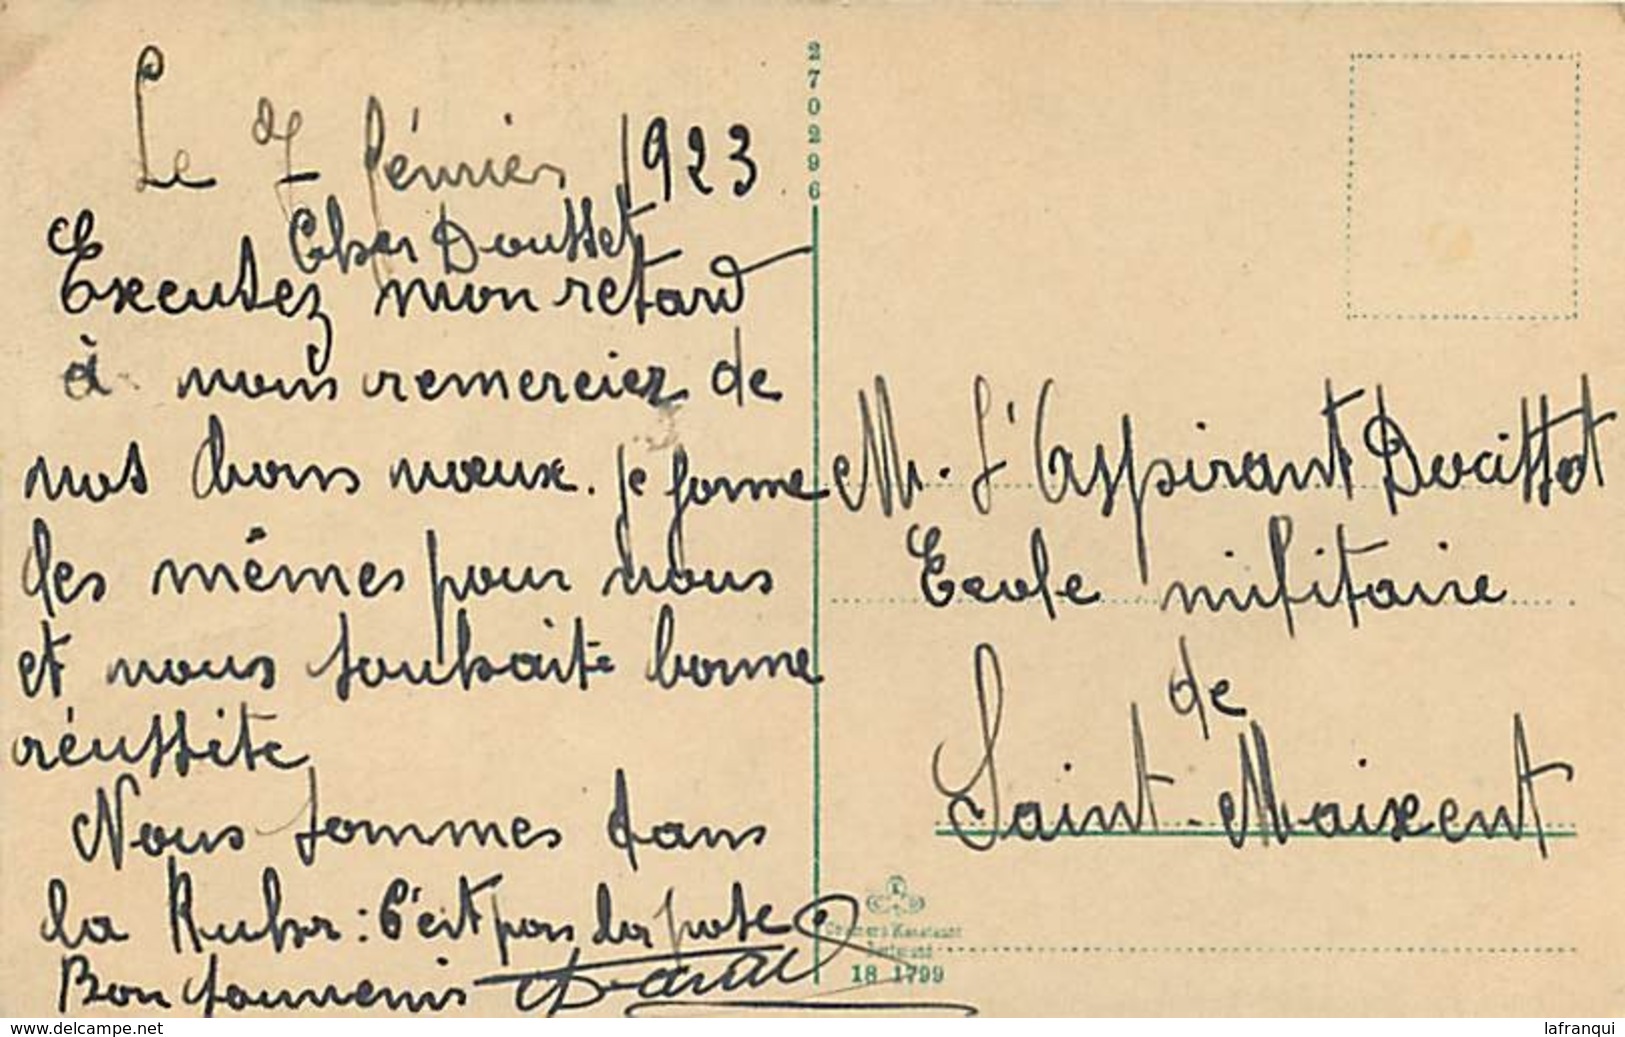 Le 7 février 1923
Cher Dousset
Excusez mon retard
à vous remercier de
vos bons vœux. je forme
les mêmes pour vous
et vous souhaite bonne
réussite
Nous sommes dans
la Ruhr : C'est pas la joie
Bon souvenir
270296
M. L'Aspirant Doussot
Ecole militaire
de
Saint-Maixent
Cramers Kunstanst
Dortmund
18 1799
www.delcampe.net
lafranqui